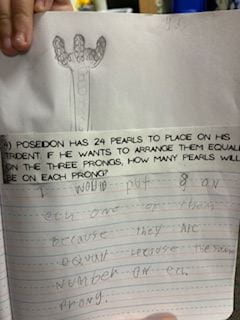 4) POSEIDON HAS 24 PEARLS TO PLACE ON HIS
TRIDENT. IF HE WANTS TO ARRANGE THEM EQUALL
ON THE THREE PRONGS, HOW MANY PEARLS WILL
BE ON EACH PRONG?
I would put 8 on
ech one of them
because they are
equal because the same
number on ech
prong.